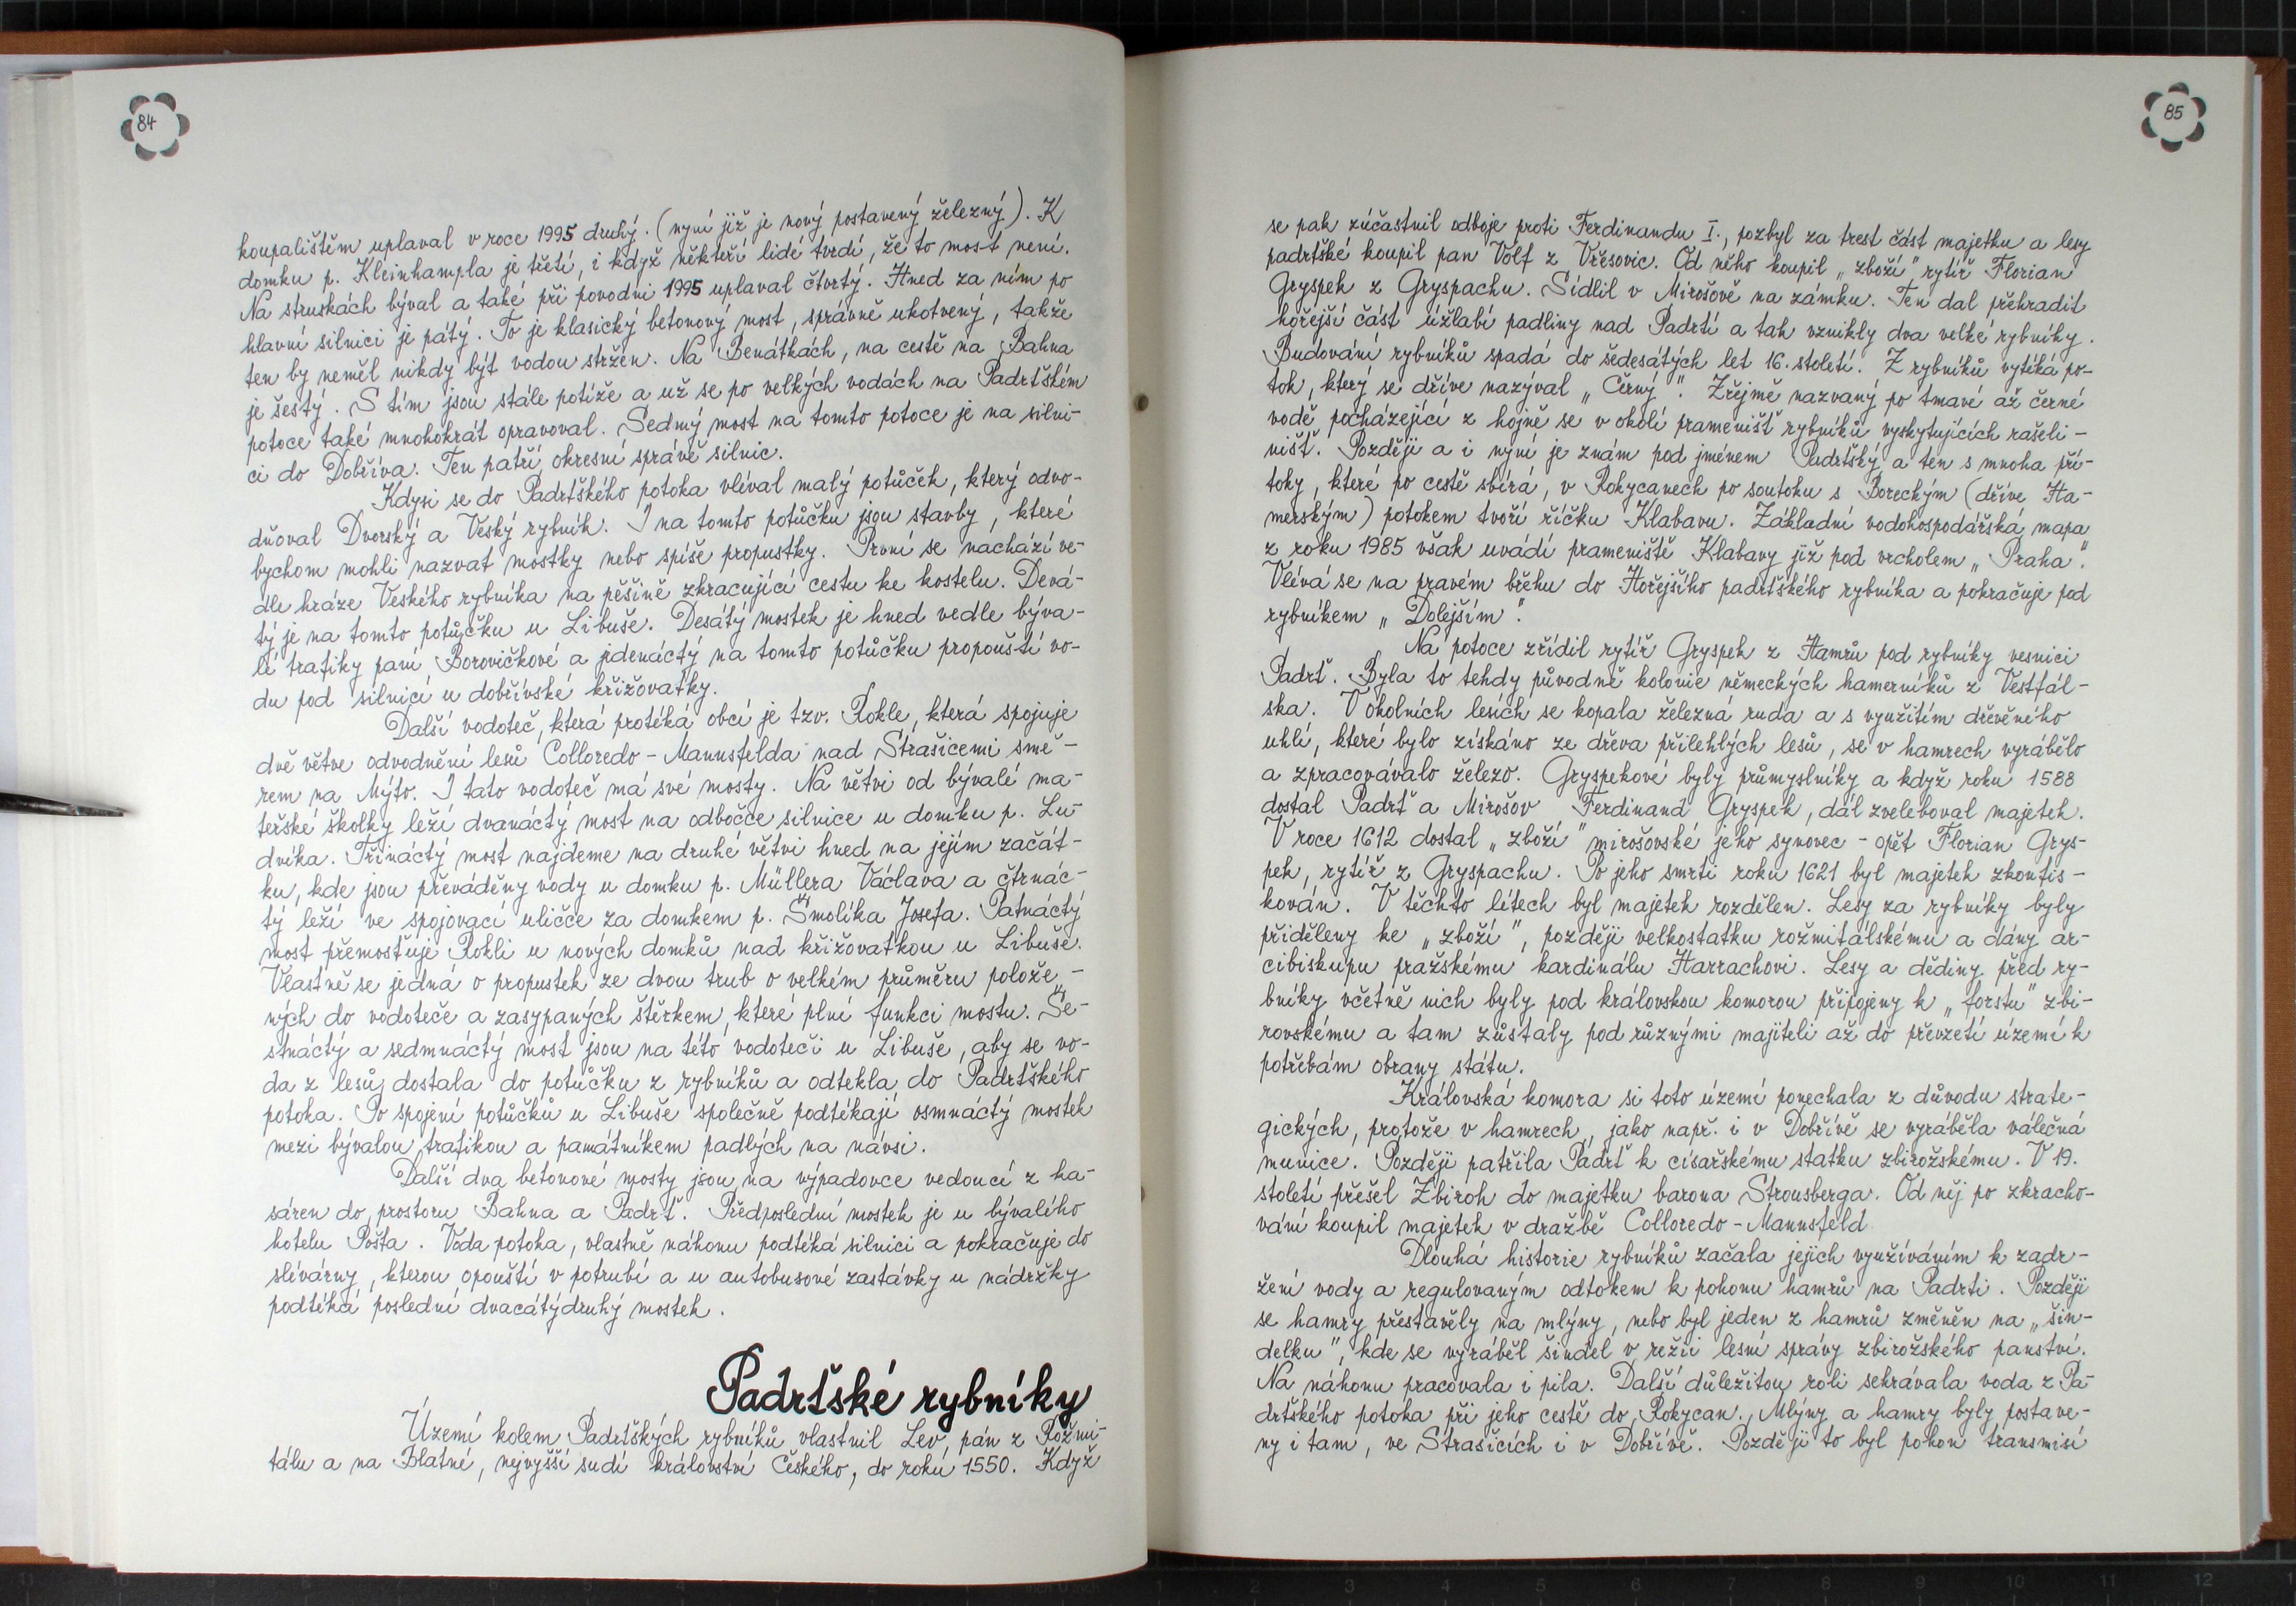 84
koupalištěm uplaval v roce 1995 druhý. (nyní již je nový postavený železný). K
domku p. Kleinhampla je třetí, i když někteří lidé tvrdí, že to most není.
Na struskách býval a také při povodni 1995 uplaval čtvrtý. Hned za ním po
hlavní silnici je pátý. To je klasický betonový most, správně ukotvený, takže
ten by neměl nikdy být vodou stržen. Na Benátkách, na cestě na Bahna
je šestý. S tím jsou stále potíže a už se po velkých vodách na Padrťském
potoce také mnohokrát opravoval. Sedmý most na tomto potoce je na silni-
ci do Dobříva. Ten patří okresní správě silnic.
Kdysi se do Padrťského potoka vléval malý potůček, který odvo-
dňoval Dvorský a Veský rybník. I na tomto potůčku jsou stavby, které
bychom mohli nazvat mostky nebo spíše propustky. První se nachází ve-
dle hráze Veského rybníka na pěšině zkracující cestu ke kostelu. Devá-
tý je na tomto potůčku u Libuše. Desátý mostek je hned vedle býva-
lé trafiky paní Borovičkové a jedenáctý na tomto potůčku propouští vo-
du pod silnicí u dobřívské křižovatky.
Další vodoteč, která protéká obcí je tzv. Rokle, která spojuje
dvě větve odvodnění lesů Colloredo - Mannsfelda nad Strašicemi smě-
rem na Mýto. I tato vodoteč má své mosty. Na větvi od bývalé ma-
teřské školky leží dvanáctý most na odbočce silnice u domku p. Lu-
dvíka. Třináctý most najdeme na druhé větvi hned na jejím začát-
ku, kde jsou převáděny vody u domku p. Müllera Václava a čtrnác-
tý leží ve spojovací uličce za domkem p. Šmolíka Josefa. Patnáctý
most přemosťuje Rokli u nových domků nad křižovatkou u Libuše.
Vlastně se jedná o propustek ze dvou trub o velkém průměru polože-
ných do vodoteče a zasypaných štěrkem, které plní funkci mostu. Še-
stnáctý a sedmnáctý most jsou na této vodoteči u Libuše, aby se vo-
da z lesů dostala do potůčku z rybníků a odtekla do Padrťského
potoka. Po spojení potůčků u Libuše společně podtékají osmnáctý mostek
mezi bývalou trafikou a památníkem padlých na návsi.
Další dva betonové mosty jsou na výpadovce vedoucí z ka-
sáren do prostoru Bahna a Padrť. Předposlední mostek je u bývalého
hotelu Pošta. Voda potoka, vlastně náhonu podtéká silnici a pokračuje do
slévárny, kterou opouští v potrubí a u autobusové zastávky u nádržky
podtéká poslední dvacátýdruhý mostek.
Padrťské rybníky
Území kolem Padrťských rybníků vlastnil Lev, pán z Rožmi-
tálu a na Blatné, nejvyšší sudí království Českého, do roku 1550. Když
85
se pak zúčastnil odboje proti Ferdinandu I., pozbyl za trest část majetku a lesy
padrťské koupil pan Volf z Vřesovic. Od něho koupil „zboží" rytíř Florian
Gryspek z Gryspachu. Sídlil v Mirošově na zámku. Ten dal přehradit
hořejší část úžlabí padliny nad Padrtí a tak vznikly dva velké rybníky.
Budování rybníků spadá do šedesátých let 16. století. Z rybníků vytéká po-
tok, který se dříve nazýval „Černý". Zřejmě nazvaný po tmavé až černé
vodě pocházející z hojně se v okolí pramenišť rybníků vyskytujících rašeli-
nišť. Později a i nyní je znám pod jménem Padrťský a ten s mnoha pří-
toky, které po cestě sbírá, v Rokycanech po soutoku s Boreckým (dříve Ha-
merským) potokem tvoří říčku Klabavu. Základní vodohospodářská mapa
z roku 1985 však uvádí prameniště Klabavy již pod vrcholem „Praha".
Vlévá se na pravém břehu do Hořejšího padrťského rybníka a pokračuje pod
rybníkem „Dolejším".
Na potoce zřídil rytíř Gryspek z Hamrů pod rybníky vesnici
Padrť. Byla to tehdy původně kolonie německých hamerníků z Vestfál-
ska. V okolních lesích se kopala železná ruda a s využitím dřevěného
uhlí, které bylo získáno ze dřeva přilehlých lesů, se v hamrech vyrábělo
a zpracovávalo železo. Gryspekové byly průmyslníky a když roku 1588
dostal Padrť a Mirošov Ferdinand Gryspek, dál zveleboval majetek.
V roce 1612 dostal „zboží" mirošovské jeho synovec - opět Florian Grys-
pek, rytíř z Gryspachu. Po jeho smrti roku 1621 byl majetek zkonfis-
kován. V těchto létech byl majetek rozdělen. Lesy za rybníky byly
přiděleny ke „zboží", později velkostatku rožmitálskému a dány ar-
cibiskupu pražskému kardinálu Harrachovi. Lesy a dědiny před ry-
bníky včetně nich byly pod královskou komorou připojeny k „forstu" zbi-
rovskému a tam zůstaly pod různými majiteli až do převzetí území k
potřebám obrany státu.
Královská komora si toto území ponechala z důvodu strate-
gických, protože v hamrech, jako např. i v Dobřívě se vyráběla válečná
munice. Později patřila Padrť k císařskému statku zbirožskému. V 19.
století přešel Zbiroh do majetku barona Strousberga. Od něj po zkracho-
vání koupil majetek v dražbě Colloredo - Mannsfeld
Dlouhá historie rybníků začala jejich využíváním k zadr-
žení vody a regulovaným odtokem k pohonu hamrů na Padrti. Později
se hamry přestavěly na mlýny, nebo byl jeden z hamrů změněn na „šin-
delku", kde se vyráběl šindel v režii lesní správy zbirožského panství.
Na náhonu pracovala i pila. Další důležitou roli sehrávala voda z Pa-
drťského potoka při jeho cestě do Rokycan. Mlýny a hamry byly postave-
ny i tam, ve Strašicích i v Dobřívě. Později to byl pohon transmisí